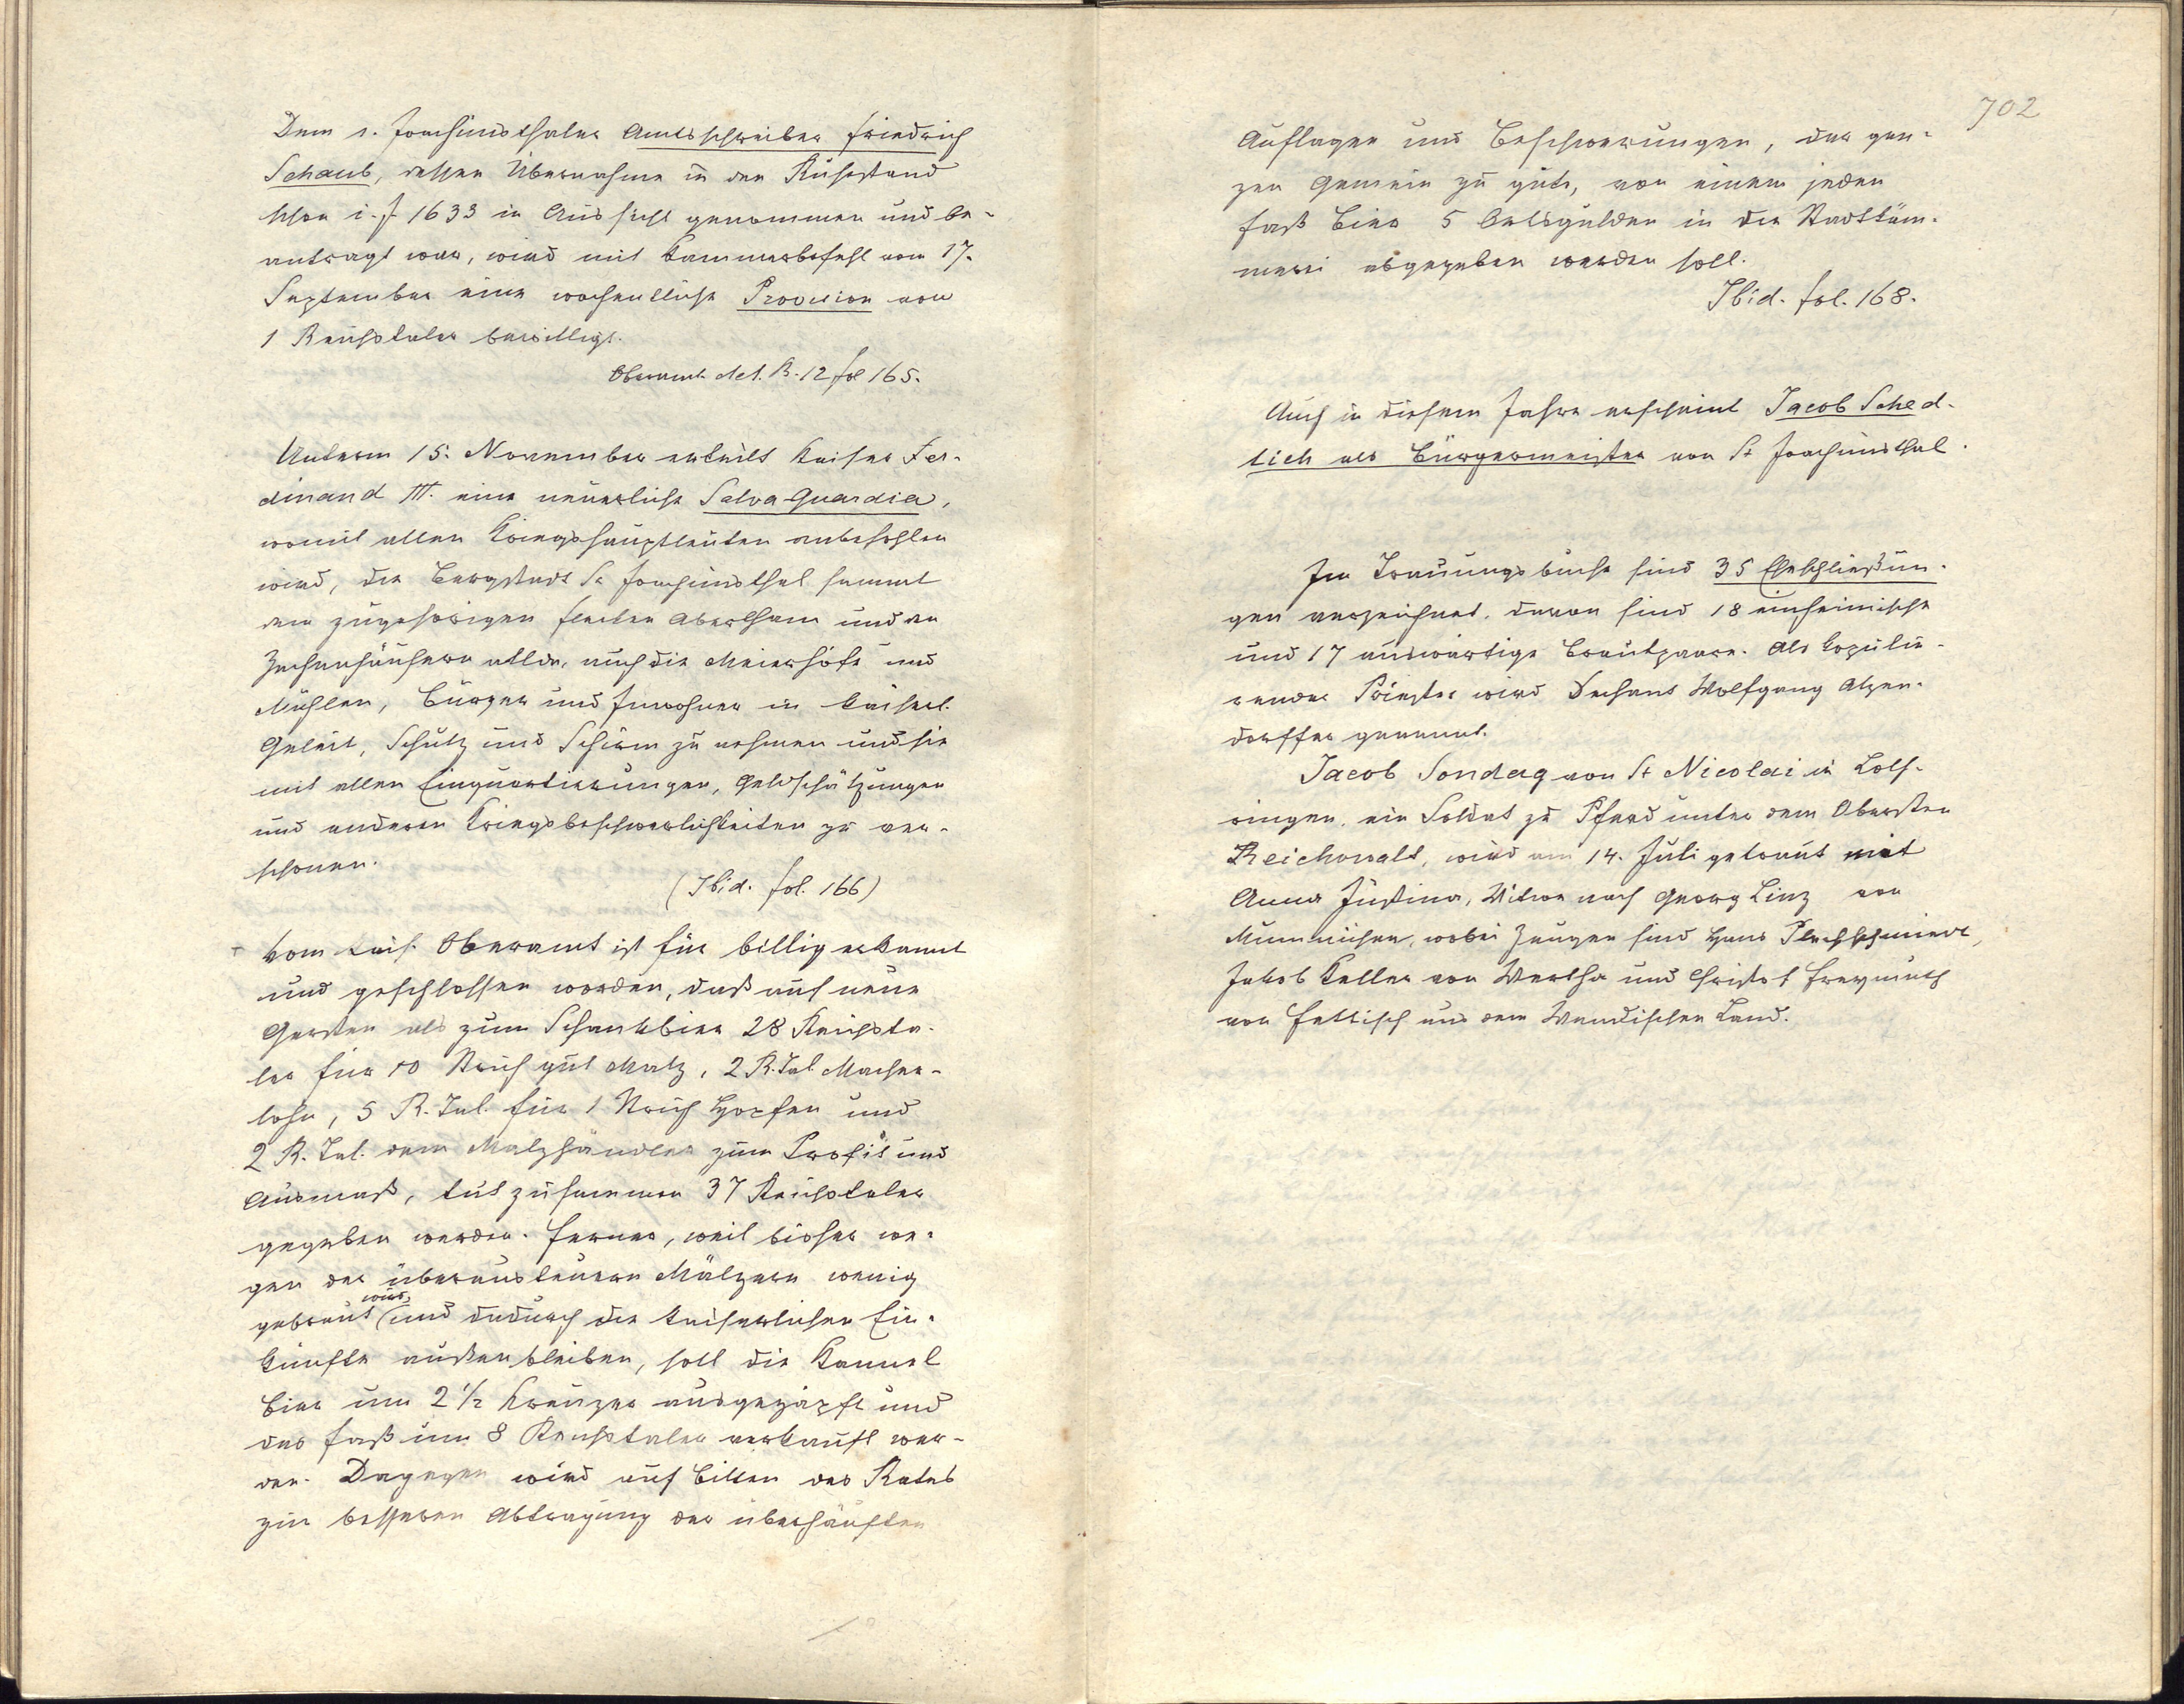 Dem s. Joachimsthaler Amtsschreiber Friedrich
Schaub, dessen Übernahme in den Ruhestand
schon i. J. 1633 in Aussicht genommen und be-
antragt war, wird mit Kammerbefehl vom 17.
September eine wochentliche Provision von
1 Reichstaler bewilligt.
Oberamt. Act. B. 12 fol 165.
Unterm 15. November erteilt Kaiser Fer-
dinand III. eine neuerliche Salva Guardia,
womit allen Kriegshauptleuten anbefohlen
wird, die Bergstadt St Joachimsthal sammt
dem zugehörigen Flecken Abertham und den
Zechenhäusern allda, auch die Meierhöfe und
Mühlen, Bürger und Inwohner in kaiserl.
Geleit, Schutz und Schirm zu nehmen und sie
mit allen Einquartierungen, Geldschätzungen
und anderen Kriegsbeschwerlichkeiten zu ver-
schonen.
(Ibid. fol. 166)
Vom kais. Oberamt ist für billig erkannt
und geschlossen worden, daß auf neue
Gersten als zum Schankbier 28 Reichsta-
ler für 10 Strich gut Malz, 2 R. Tal. Macher-
lohn, 5 R. Tal. für 1 Strich Hopfen und
2 R. Tal. dem Malzhändler zum Profit und
Ausmaß, tut zusammen 37 Reichstaler
gegeben werden. Ferner, weil bisher we-
gen der überausteuern Mälzern wenig
wird,
gebraut und dadurch die kaiserlichen Ein-
künfte außenbleiben, soll die Kannel
Bier um 2 1/2 Kreuzer ausgezäpft und
das Faß um 8 Reichstaler verkauft wer-
den. Dagegen wird auf Bitten des Rates
zur besseren Abtragung der überhäuften
702
Auflagen und Beschwerungen, der gan-
zen Gemein zu gute, von einem jeden
Faß Bier 5 Ortsgulden in die Stadtkäm-
merei abgegeben werden soll.
Ibid. fol. 168.
Auch in diesem Jahre erscheint Jacob Sched-
lich als Bürgermeister von St Joachimsthal.
Im Trauungsbuche sind 35 Eheschließun-
gen verzeichnet, davon sind 18 einheimische
und 17 auswärtige Brautpaare. Als kopulie-
render Priester wird Dechant Wolfgang Alzen-
dorffer genannt.
Jacob Sondag von St Nicolai in Loth-
ringen, ein Soldat zu Pferd unter dem Obersten
Reichowalt, wird am 14. Juli getraut mit
Anna Justina, Witwe nach Georg Linz von
wobei Zeugen sind Hans Plechschmiedt,
Jakob Keller von Wertha und Christof Freymuth
von Fettisch aus dem Wendischen Land.